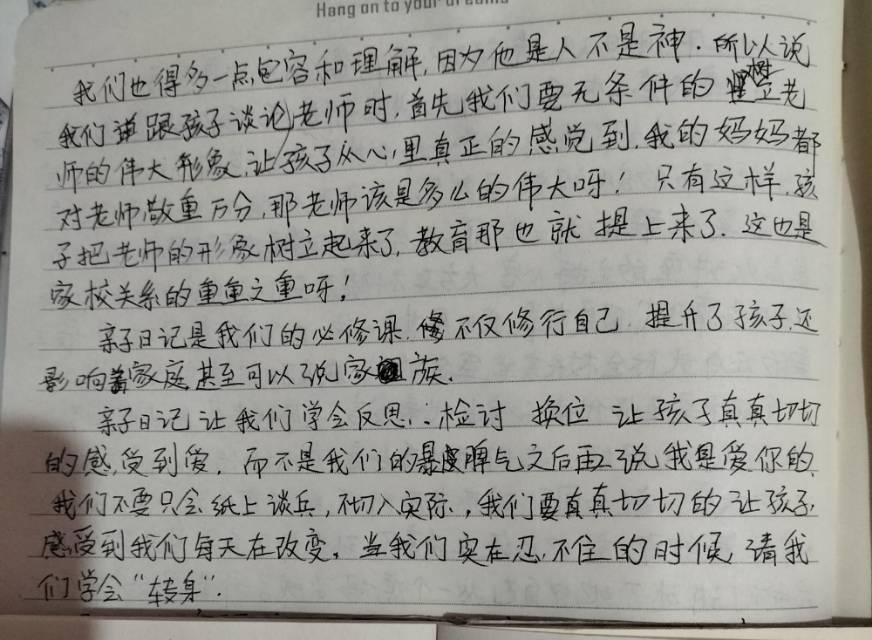 Hang on to your dreams
我们也得多一点包容和理解,因为他是人不是神.所以说
我们跟孩子谈论老师时,首先我们要无条件的树立老
师的伟大形象,让孩子从心里真正的感觉到,我的妈妈都
对老师敬重万分,那老师该是多么的伟大呀!只有这样,孩
子把老师的形象树立起来了,教育那也就提上来了.这也是
家校关系的重重之重呀!
亲子日记是我们的必修课,不仅修行自己 提升了孩子,还
影响着家庭甚至可以说家族.
亲子日记 让我们学会反思,检讨 换位 让孩子真真切切
的感受到爱,而不是我们的暴脾气之后再说我是爱你的
我们不要只会纸上谈兵,不切入实际,我们要真真切切的让孩子
感受到我们每天在改变,当我们实在忍不住的时候,请我
们学会"转身".